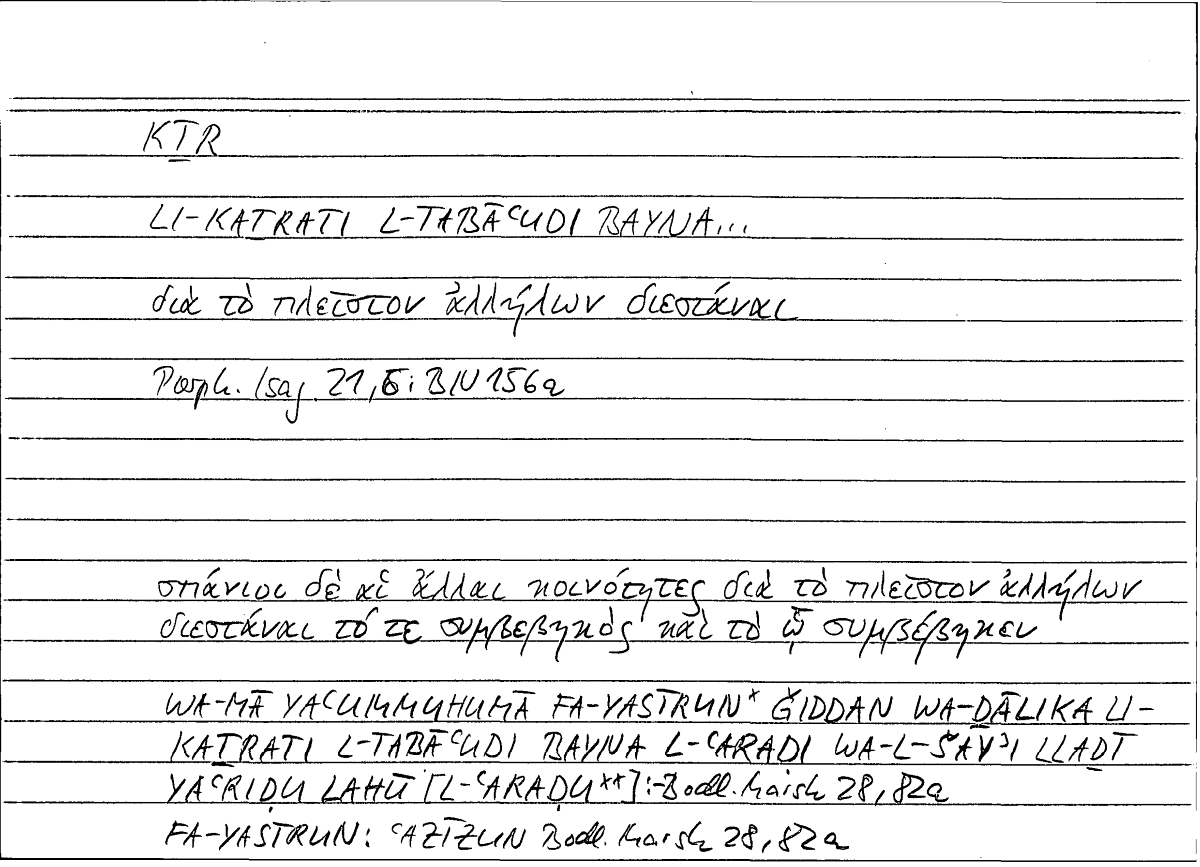 KṮR
LI-KAṮRATI L-TABĀʿUDI BAYNA...
διὰ τὸ πλεῖστον ἀλλήλων διεστάναι
Porph. Isag. 21,6: BN 156a
σπάνιοι δὲ αἱ ἄλλαι κοινότητες διὰ τὸ πλεῖστον ἀλλήλων
διεστάναι τό τε συμβεβηκὸς καὶ τὸ ᾧ συμβέβηκεν
WA-MĀ YAʿUMMUHUMĀ FA-YASĪRUN* ǦIDDAN WA-ḎĀLIKA LI-
KAṮRATI L-TABĀʿUDI BAYNA L-ʿARAḌI WA-L-ŠAYʾI LLAḎĪ
YAʿRIḌU LAHŪ [L-ʿARAḌU**]:-Bodl. Marsh 28,82a
FA-YASĪRUN: ʿAZĪZUN Bodl. Marsh 28,82a